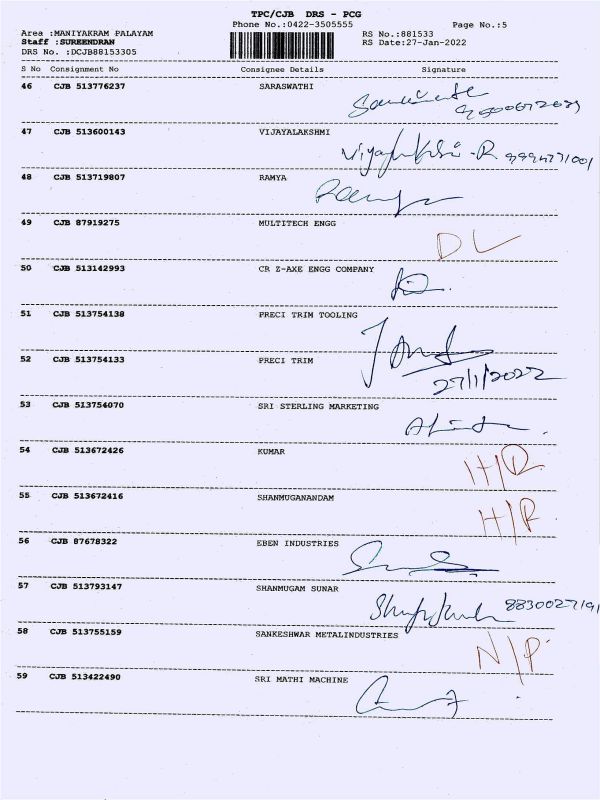 TPC/CJB DRS - PCG
Phone No.:0422-3505555 Page No.:5
Area :MANIYAKRAM PALAYAM RS No.:881533
Staff :SUREENDRAN RS Date:27-Jan-2022
DRS No. :DCJB88153305
S No Consignment No Consignee Details Signature
46 CJB 513776237 SARASWATHI
47 CJB 513600143 VIJAYALAKSHMI
48 CJB 513719807 RAMYA
49 CJB 87919275 MULTITECH ENGG
DL
50 CJB 513142993 CR Z-AXE ENGG COMPANY
51 CJB 513754138 PRECI TRIM TOOLING
52 CJB 513754133 PRECI TRIM
27/1/2022
53 CJB 513754070 SRI STERLING MARKETING
54 CJB 513672426 KUMAR
H/R
55 CJB 513672416 SHANMUGANANDAM
H/R
56 CJB 87678322 EBEN INDUSTRIES
57 CJB 513793147 SHANMUGAM SUNAR
58 CJB 513755159 SANKESHWAR METALINDUSTRIES
N/P
59 CJB 513422490 SRI MATHI MACHINE